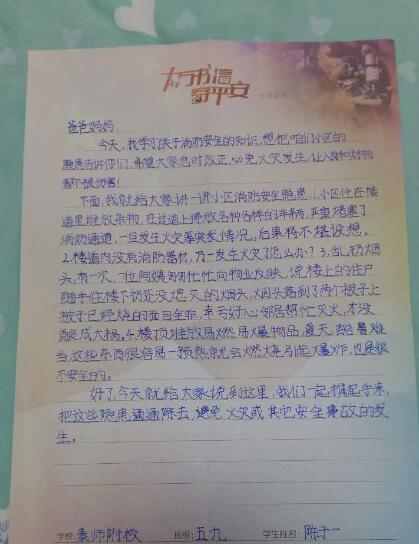 万书信
寄平安
爸爸妈妈:
今天,我学习了关于消防安全的知识,想把咱们小区的
隐患告诉你们,希望大家及时改正,必免火灾发生,让人身和财物
都不被伤害!
下面,我就给大家讲一讲小区消防安全隐患,1.小区住在楼
道里堆放杂物,在过道上停放各种各样的车辆,严重堵塞了
消防通道,一旦发生火灾等突发情况,后果将不堪设想。
2.楼道内没有消防器材,万一发生火灾了怎么办?3.乱扔烟
头,有一次,一位阿姨匆匆忙忙向物业反映,说楼上的住户
随手往楼下扔还没熄灭的烟头,烟头落到了两个被子上
被子已经烧的面目全非,幸亏好心邻居帮忙灭火,才没
酿成大祸。4.楼顶堆放易燃易爆物品,夏天,酷暑难
当,这些东西很容易一预热就会燃烧,引起爆炸,也是很
不安全的。
好了,今天就给大家说到这里,我们一起携起手来,
把这些隐患通通除去,避免火灾或其它安全事故的发
生。
学校:泰师附校 班级:五九 学生姓名:陈子一